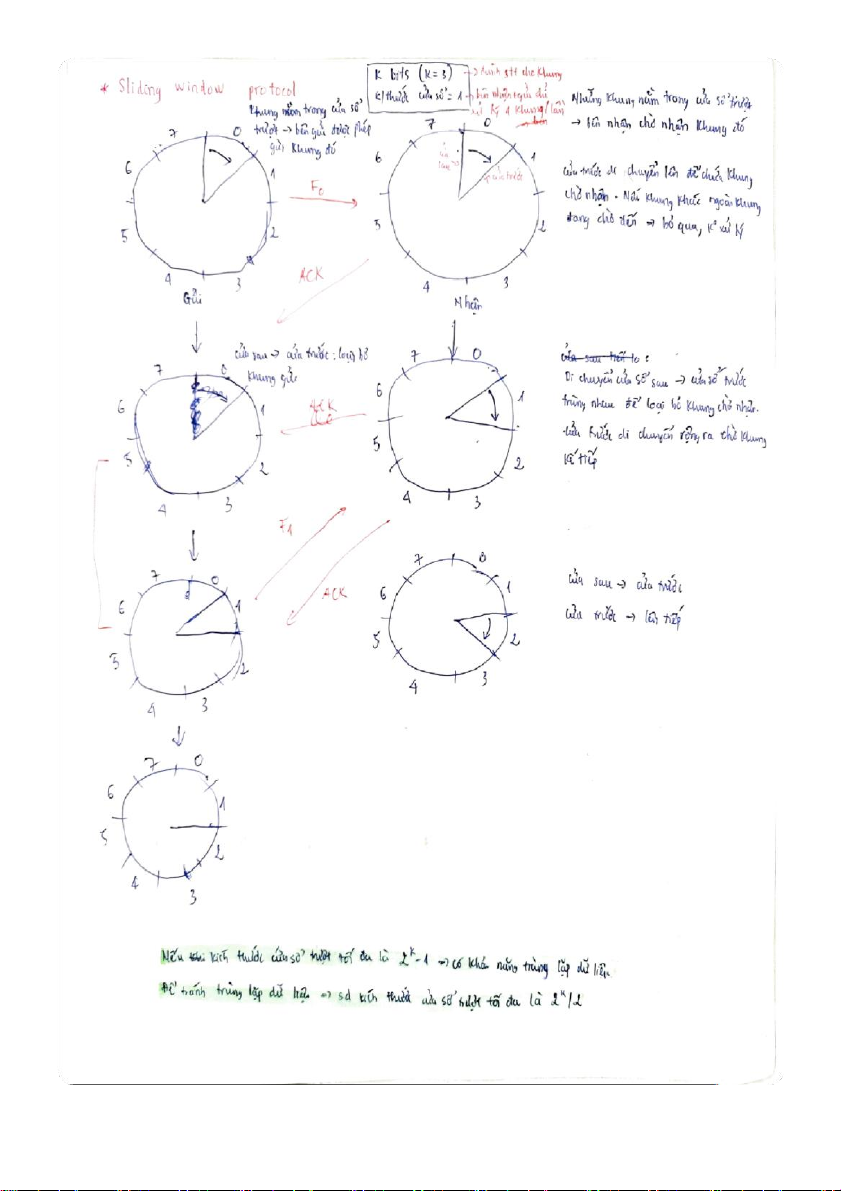 * Sliding window protocol
K bits (K=3) → đánh stt cho khung
K/thước cửa sổ = 1 → bên nhận
xử lý 1 khung/lần
Khung nằm trong cửa sổ
trượt → bên gửi được phép
gửi khung đó
Những khung nằm trong cửa sổ trượt
→ bên nhận chờ nhận khung đó
7 0 1 2 3 4 5 6
7 0 1 2 3 4 5 6
cửa trước
F0
cửa trước di chuyển lên để chứa khung
chờ nhận. Nếu khung khác ngoài khung
đang chờ đến → bỏ qua, k° xử lý
ACK
Gửi
Nhận
cửa sau → cửa trước: loại bỏ
khung gửi
7 0 1 2 3 4 5 6
7 0 1 2 3 4 5 6
ACK
cửa sau
Di chuyển cửa sổ sau → cửa sổ trước
trùng nhau để loại bỏ khung chờ nhận.
cửa trước di chuyển rộng ra chờ khung
kế tiếp
F1
ACK
7 0 1 2 3 4 5 6
7 0 1 2 3 4 5 6
cửa sau → cửa trước
cửa trước → lên tiếp
7 0 1 2 3 4 5 6
Nếu kích thước cửa sổ trượt tối đa là 2^k-1 → có khả năng trùng lặp dữ liệu.
Để tránh trùng lặp dữ liệu → sd kích thước cửa sổ trượt tối đa là 2^k/2